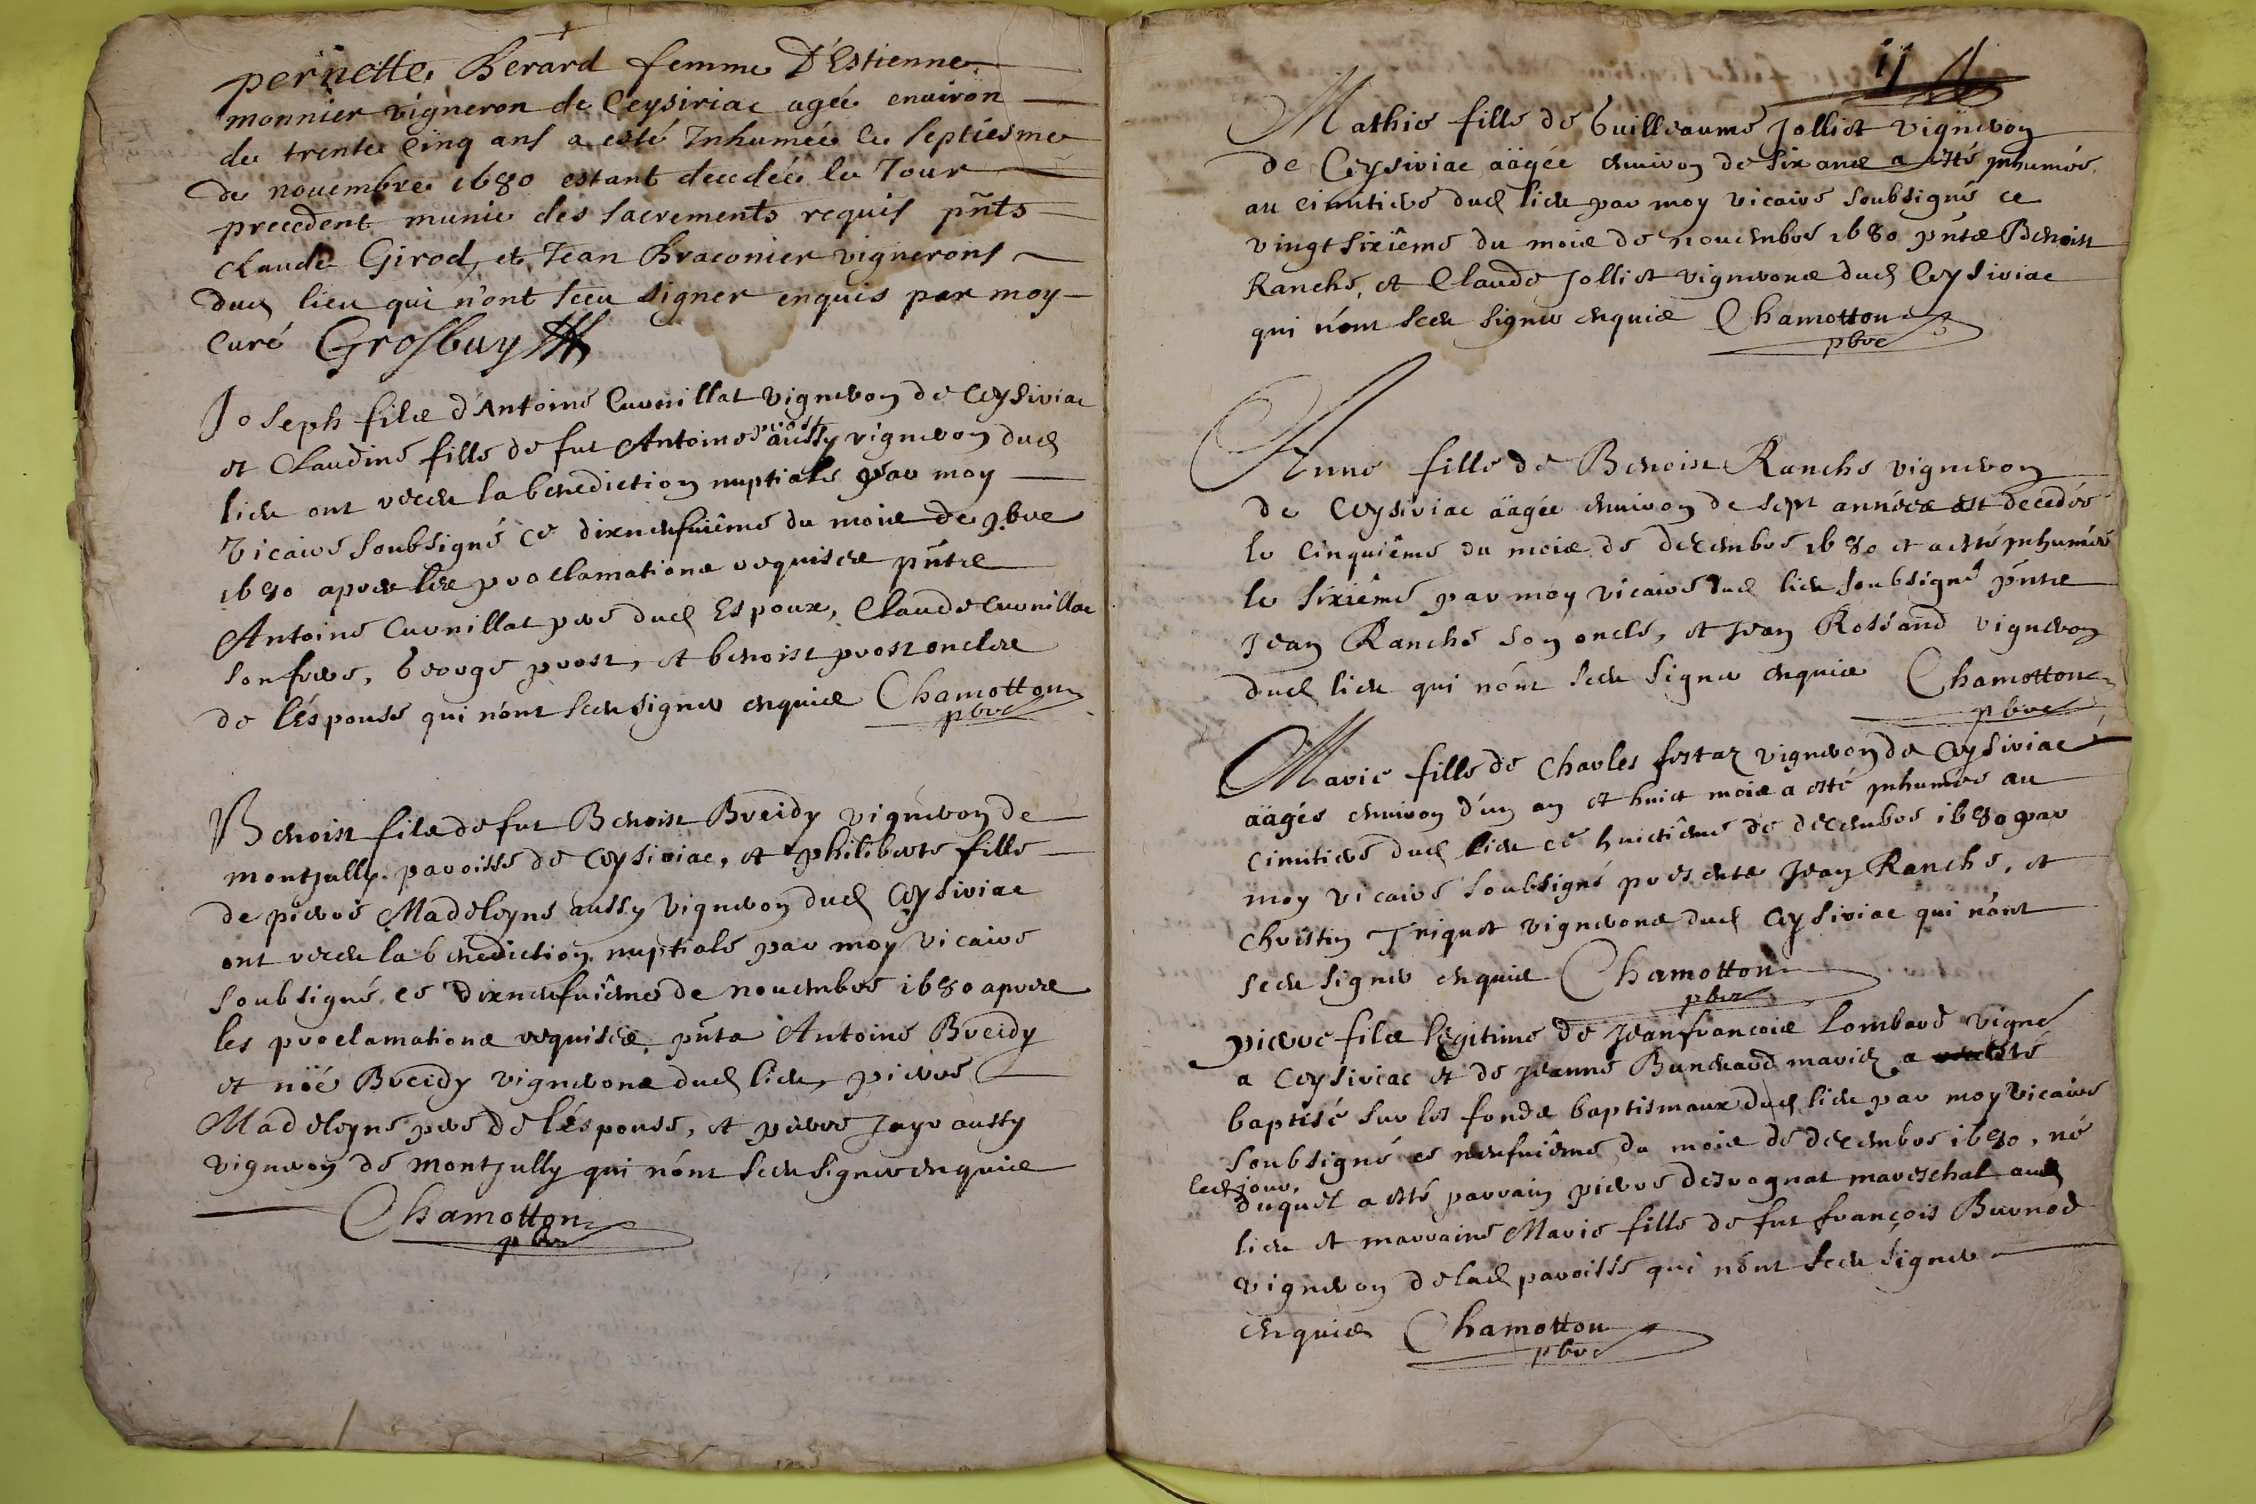 pernette Berard femme D'Estienne
monnier vigneron de Ceysiriac agée enuiron
de trente Cinq ans a esté Inhumée le septiesme
de nouembre 1680 estant decedée le Jour
precedent munie des sacrements requis pñts
Claude Girod, et Jean Braconier vignerons
dud lieu qui n'ont sceu signer enquis par moy
Curé Grosbuy
Joseph filz d'Antoine Cuvnillat vigneron de Ceysiriac
et Claudine fille de fut Antoine prost aussy vigneron dud
lieu ont receu la benediction nuptiale par moy
vicaire soubsigné ce dixneufuiême du mois de 9.bre
1680 apres les proclamations requises pñtz
Antoine Cuvnillat pere dud Espoux, Claude Cuvnillat
son frere, George prost, et benoist prost oncles
de léspouse qui n'ont sceu signer enquis Chamotton
pbre
Benoist filz de fut Benoist Breidy vigneron de
montjully paroisse de Ceysiriac, et philiberte fille
de pierre Madeleyne aussy vigneron dud Ceysiriac
ont receu la benediction nuptiale par moy vicaire
soubsigné ce dixneufuiême de nouembre 1680 apres
les proclamations requises, pñts Antoine Breidy
et noé Breidy vignerons dud lieu, pierre
Madeleyne pere de léspouse, et pierre Jayr aussy
vigneron de montjully qui n'ont sceu signer enquis
Chamotton
pbre
11
Mathie fille de Guilleaume Jolliet vigneron
de Ceysiriac äàgée enuiron de six ans a esté inhumée
au cimitiere dud lieu par moy vicaire soubsigné ce
vingt sixiême du mois de nouembre 1680 pñts Benoist
Ranche, et Claude Jolliet vignerons dud Ceysiriac
qui n'ont sceu signer enquis Chamotton
pbre
Anne fille de Benoist Ranche vigneron
de Ceysiriac äàgée enuiron de sept années est decedée
le Cinquiême du mois de decembre 1680 et a esté inhumée
le sixiême par moy vicaire dud lieu soubsigné pñts
Jean Ranche son oncle, et Jean Rossand vigneron
dud lieu qui n'ont sceu signer enquis Chamotton
pbre
Marie fille de Charles festaz vigneron de Ceysiriac
äàgée enuiron d'un an et huict mois a esté inhumée au
cimitiere dud lieu ce huictiême de decembre 1680 par
moy vicaire soubsigné presents Jean Ranche, et
Christin Triquet vignerons dud Ceysiriac qui n'ont
sceu signer enquis Chamotton
pbre
pierre filz legitime de Jean francois Lombard vigne
a Ceysiriac et de Jeanne mariez a esté
baptisé sur les fonds baptismaux dud lieu par moy vicaire
soubsigné ce neufuiême du mois de decembre 1680, né
led jour,
duquel a esté parrain pierre desrognat mareschal aud
lieu et marraine Marie fille de fut françois Burnod
vigneron de lad paroisse qui n'ont sceu signer
enquis Chamotton
pbre